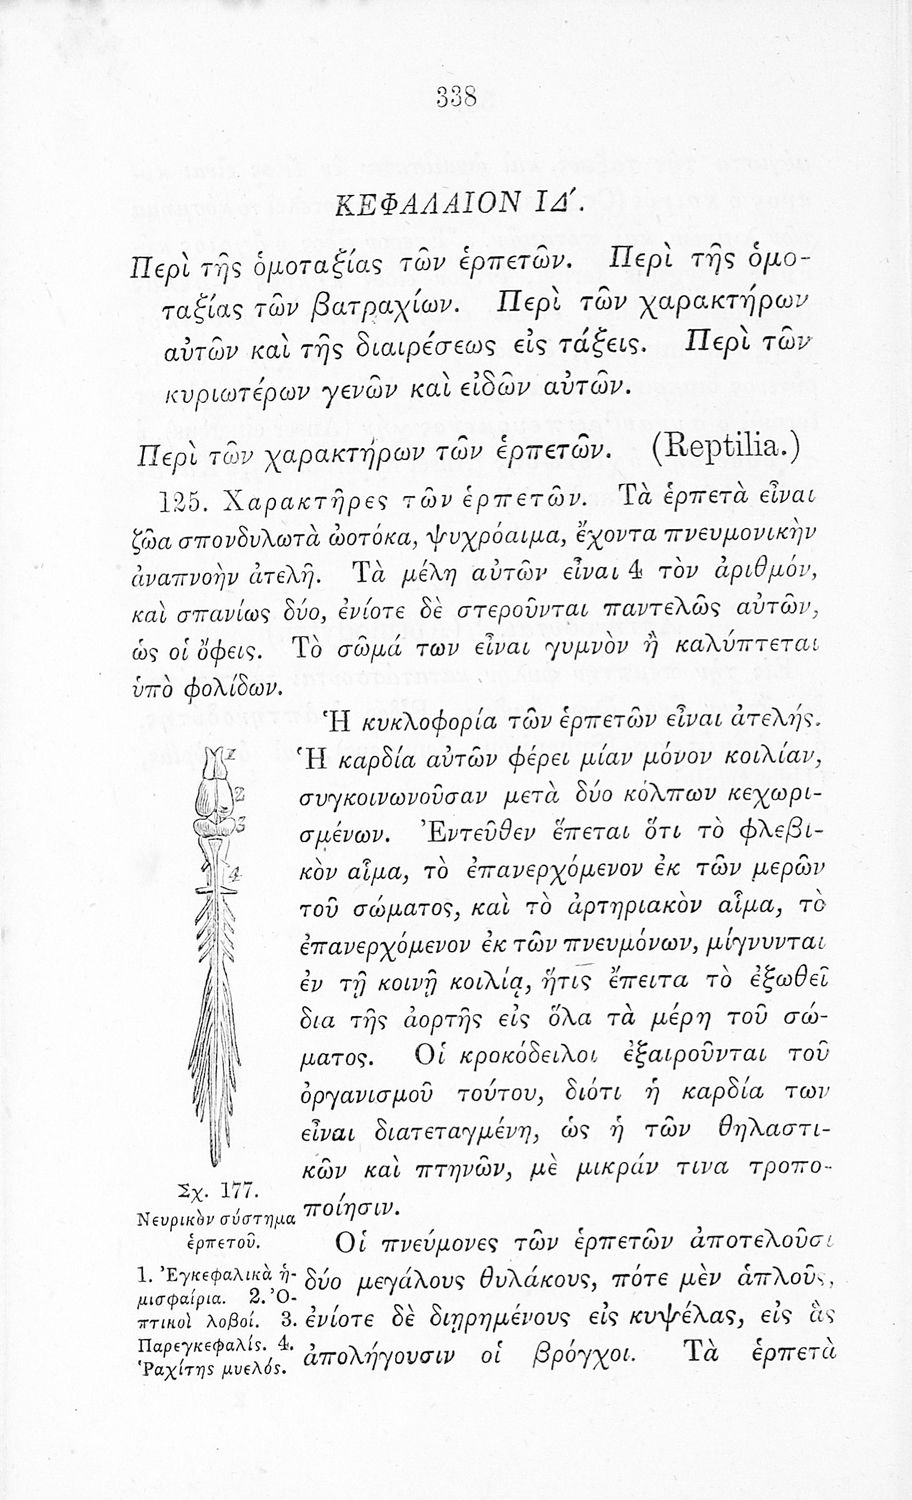 338
ΚΕΦΑΛΑΙΟΝ ΙΔ΄.
Περὶ τῆς ὁμοταξίας τῶν ἑρπετῶν. Περὶ τῆς ὁμο-
ταξίας τῶν βατραχίων. Περὶ τῶν χαρακτήρων
αὐτῶν καὶ τῆς διαιρέσεως εἰς τάξεις. Περὶ τῶν
κυριωτέρων γενῶν καὶ εἰδῶν αὐτῶν.
Περὶ τῶν χαρακτήρων τῶν ἑρπετῶν. (Reptilia.)
125. Χαρακτῆρες τῶν ἑρπετῶν. Τὰ ἑρπετὰ εἶναι
ζῶα σπονδυλωτὰ ὠοτόκα, ψυχρόαιμα, ἔχοντα πνευμονικὴν
ἀναπνοὴν ἀτελῆ. Τὰ μέλη αὐτῶν εἶναι 4 τὸν ἀριθμόν,
καὶ σπανίως δύο, ἐνίοτε δὲ στεροῦνται παντελῶς αὐτῶν,
ὡς οἱ ὄφεις. Τὸ σῶμά των εἶναι γυμνὸν ἢ καλύπτεται
ὑπὸ φολίδων.
Ἡ κυκλοφορία τῶν ἑρπετῶν εἶναι ἀτελής.
Ἡ καρδία αὐτῶν φέρει μίαν μόνον κοιλίαν,
συγκοινωνοῦσαν μετὰ δύο κόλπων κεχωρι-
σμένων. Ἐντεῦθεν ἕπεται ὅτι τὸ φλεβι-
κὸν αἷμα, τὸ ἐπανερχόμενον ἐκ τῶν μερῶν
τοῦ σώματος, καὶ τὸ ἀρτηριακὸν αἷμα, τὸ
ἐπανερχόμενον ἐκ τῶν πνευμόνων, μίγνυνται
ἐν τῇ κοινῇ κοιλίᾳ, ἥτις ἔπειτα τὸ ἐξωθεῖ
δια τῆς ἀορτῆς εἰς ὅλα τὰ μέρη τοῦ σώ-
ματος. Οἱ κροκόδειλοι ἐξαιροῦνται τοῦ
ὀργανισμοῦ τούτου, διότι ἡ καρδία των
εἶναι διατεταγμένη, ὡς ἡ τῶν θηλαστι-
κῶν καὶ πτηνῶν, μὲ μικράν τινα τροπο-
ποίησιν.
1
2
3
4
Σχ. 177.
Νευρικὸν σύστημα
ἑρπετοῦ.
1. Ἐγκεφαλικὰ ἡ-
μισφαίρια. 2. Ὀ-
πτικοὶ λοβοί. 3.
Παρεγκεφαλίς. 4.
Ῥαχίτης μυελός.
Οἱ πνεύμονες τῶν ἑρπετῶν ἀποτελοῦσι
δύο μεγάλους θυλάκους, πότε μὲν ἁπλοῦς,
ἐνίοτε δὲ διῃρημένους εἰς κυψέλας, εἰς ἃς
ἀπολήγουσιν οἱ βρόγχοι. Τὰ ἑρπετὰ